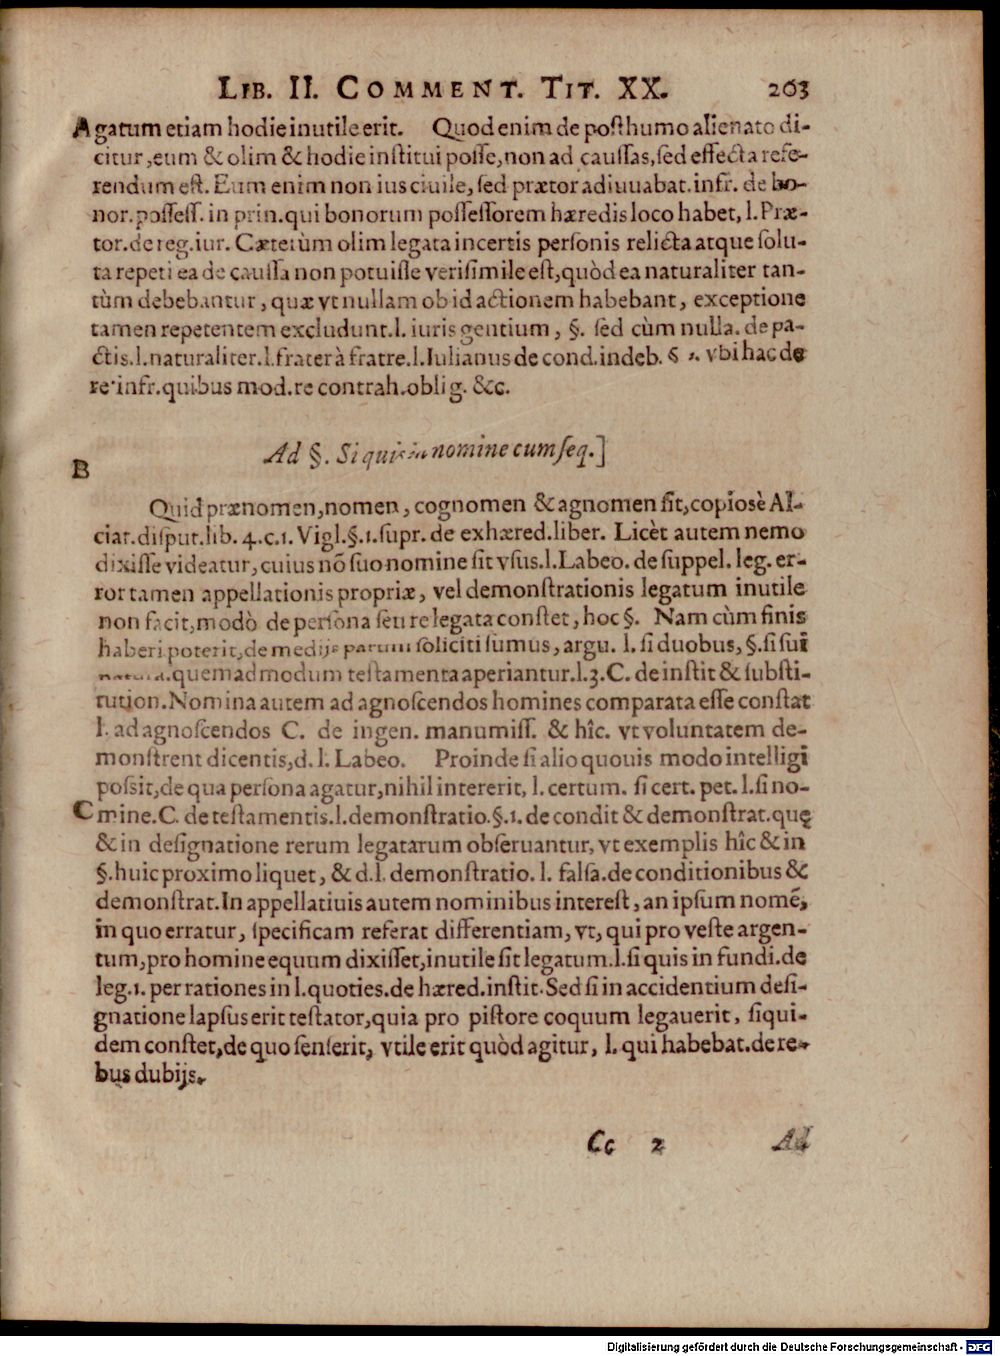 LIB. II. COMMENT. TIT. XX. 263
A gatum etiam hodie inutile erit. Quod enim de posthumo alienato di-
citur, eum & olim & hodie institui posse, non ad caussas, sed effecta refe-
rendum est. Eum enim non ius ciuile, sed prætor adiuuabat. infr. de bo-
nor. possess. in prin. qui bonorum possessorem hæredis loco habet, l. Præ-
tor. de reg. iur. Cæterùm olim legata incertis personis relicta atque solu-
ta repeti ea de caussa non potuisse verisimile est, quòd ea naturaliter tan-
tùm debebantur, quæ vt nullam ob id actionem habebant, exceptione
tamen repetentem excludunt. l. iuris gentium, §. sed cùm nulla. de pa-
ctis. l. naturaliter. l. frater à fratre. l. Iulianus de cond. indeb. § 1. vbi hac de
re infr. quibus mod. re contrah. oblig. &c.
Ad §. Si quis in nomine cum seq.]
B
Quid prænomen, nomen, cognomen & agnomen sit, copiosè Al-
ciat. disput. lib. 4. c. 1. Vigl. §. 1. supr. de exhæred. liber. Licèt autem nemo
dixisse videatur, cuius nõ suo nomine sit vsus. l. Labeo. de suppel. leg. er-
ror tamen appellationis propriæ, vel demonstrationis legatum inutile
non facit, modò de persona seu re legata constet, hoc §. Nam cùm finis
haberi poterit, de medijs parum soliciti sumus, argu. l. si duobus, §. si sui
natura. quemadmodum testamenta aperiantur. l. 3. C. de instit & substi-
tution. Nomina autem ad agnoscendos homines comparata esse constat
l. ad agnoscendos C. de ingen. manumiss. & hîc. vt voluntatem de-
monstrent dicentis, d. l. Labeo. Proinde si alio quouis modo intelligi
possit, de qua persona agatur, nihil intererit, l. certum. si cert. pet. l. si no-
C mine. C. de testamentis. l. demonstratio. §. 1. de condit & demonstrat. quę
& in designatione rerum legatarum obseruantur, vt exemplis hîc & in
§. huic proximo liquet, & d. l. demonstratio. l. falsa. de conditionibus &
demonstrat. In appellatiuis autem nominibus interest, an ipsum nomẽ,
in quo erratur, specificam referat differentiam, vt, qui pro veste argen-
tum, pro homine equum dixisset, inutile sit legatum. l. si quis in fundi. de
leg. 1. per rationes in l. quoties. de hæred. instit. Sed si in accidentium desi-
gnatione lapsus erit testator, quia pro pistore coquum legauerit, siqui-
dem constet, de quo senserit, vtile erit quòd agitur, l. qui habebat. de re-
bus dubijs.
Cc 2 Ad
Digitalisierung gefördert durch die Deutsche Forschungsgemeinschaft - DFG